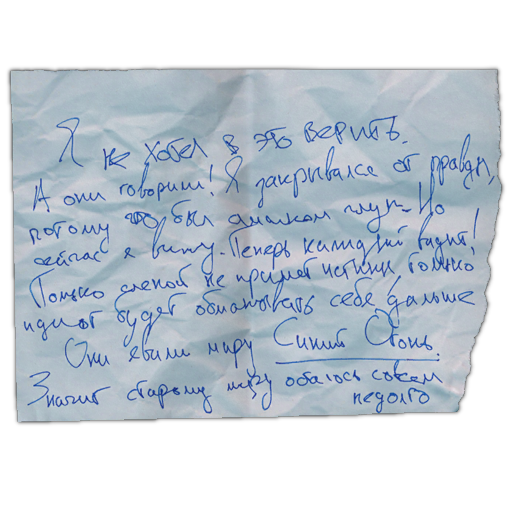 Я не хотел в это верить.
А они говорили! Я закрывался от правды,
потому что был слишком глуп. Но
сейчас я вижу. Теперь каждый видит!
Только слепой не примет истины, только
идиот будет обманывать себя дальше
Они явили миру Синий Огонь.
Значит старому миру осталось совсем
недолго